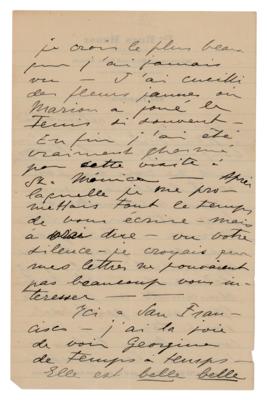 je crois le plus beau
que j'ai jamais
vu — J'ai cueilli
des fleurs jaunes où
Marion a joué le
tennis si souvent —
Enfin j'ai été
vraiment charmé
par cette visite à
St. Monica — Après
laquelle je me pro-
mettais tout le temps
de vous écrire — mais
à vrai dire — vu votre
silence — je croyais que
mes lettres ne pouvaient
pas beaucoup vous in-
téresser —
Ici a San Fran-
cisco — j'ai la joie
de voir Georgina
de temps à temps —
Elle est belle belle